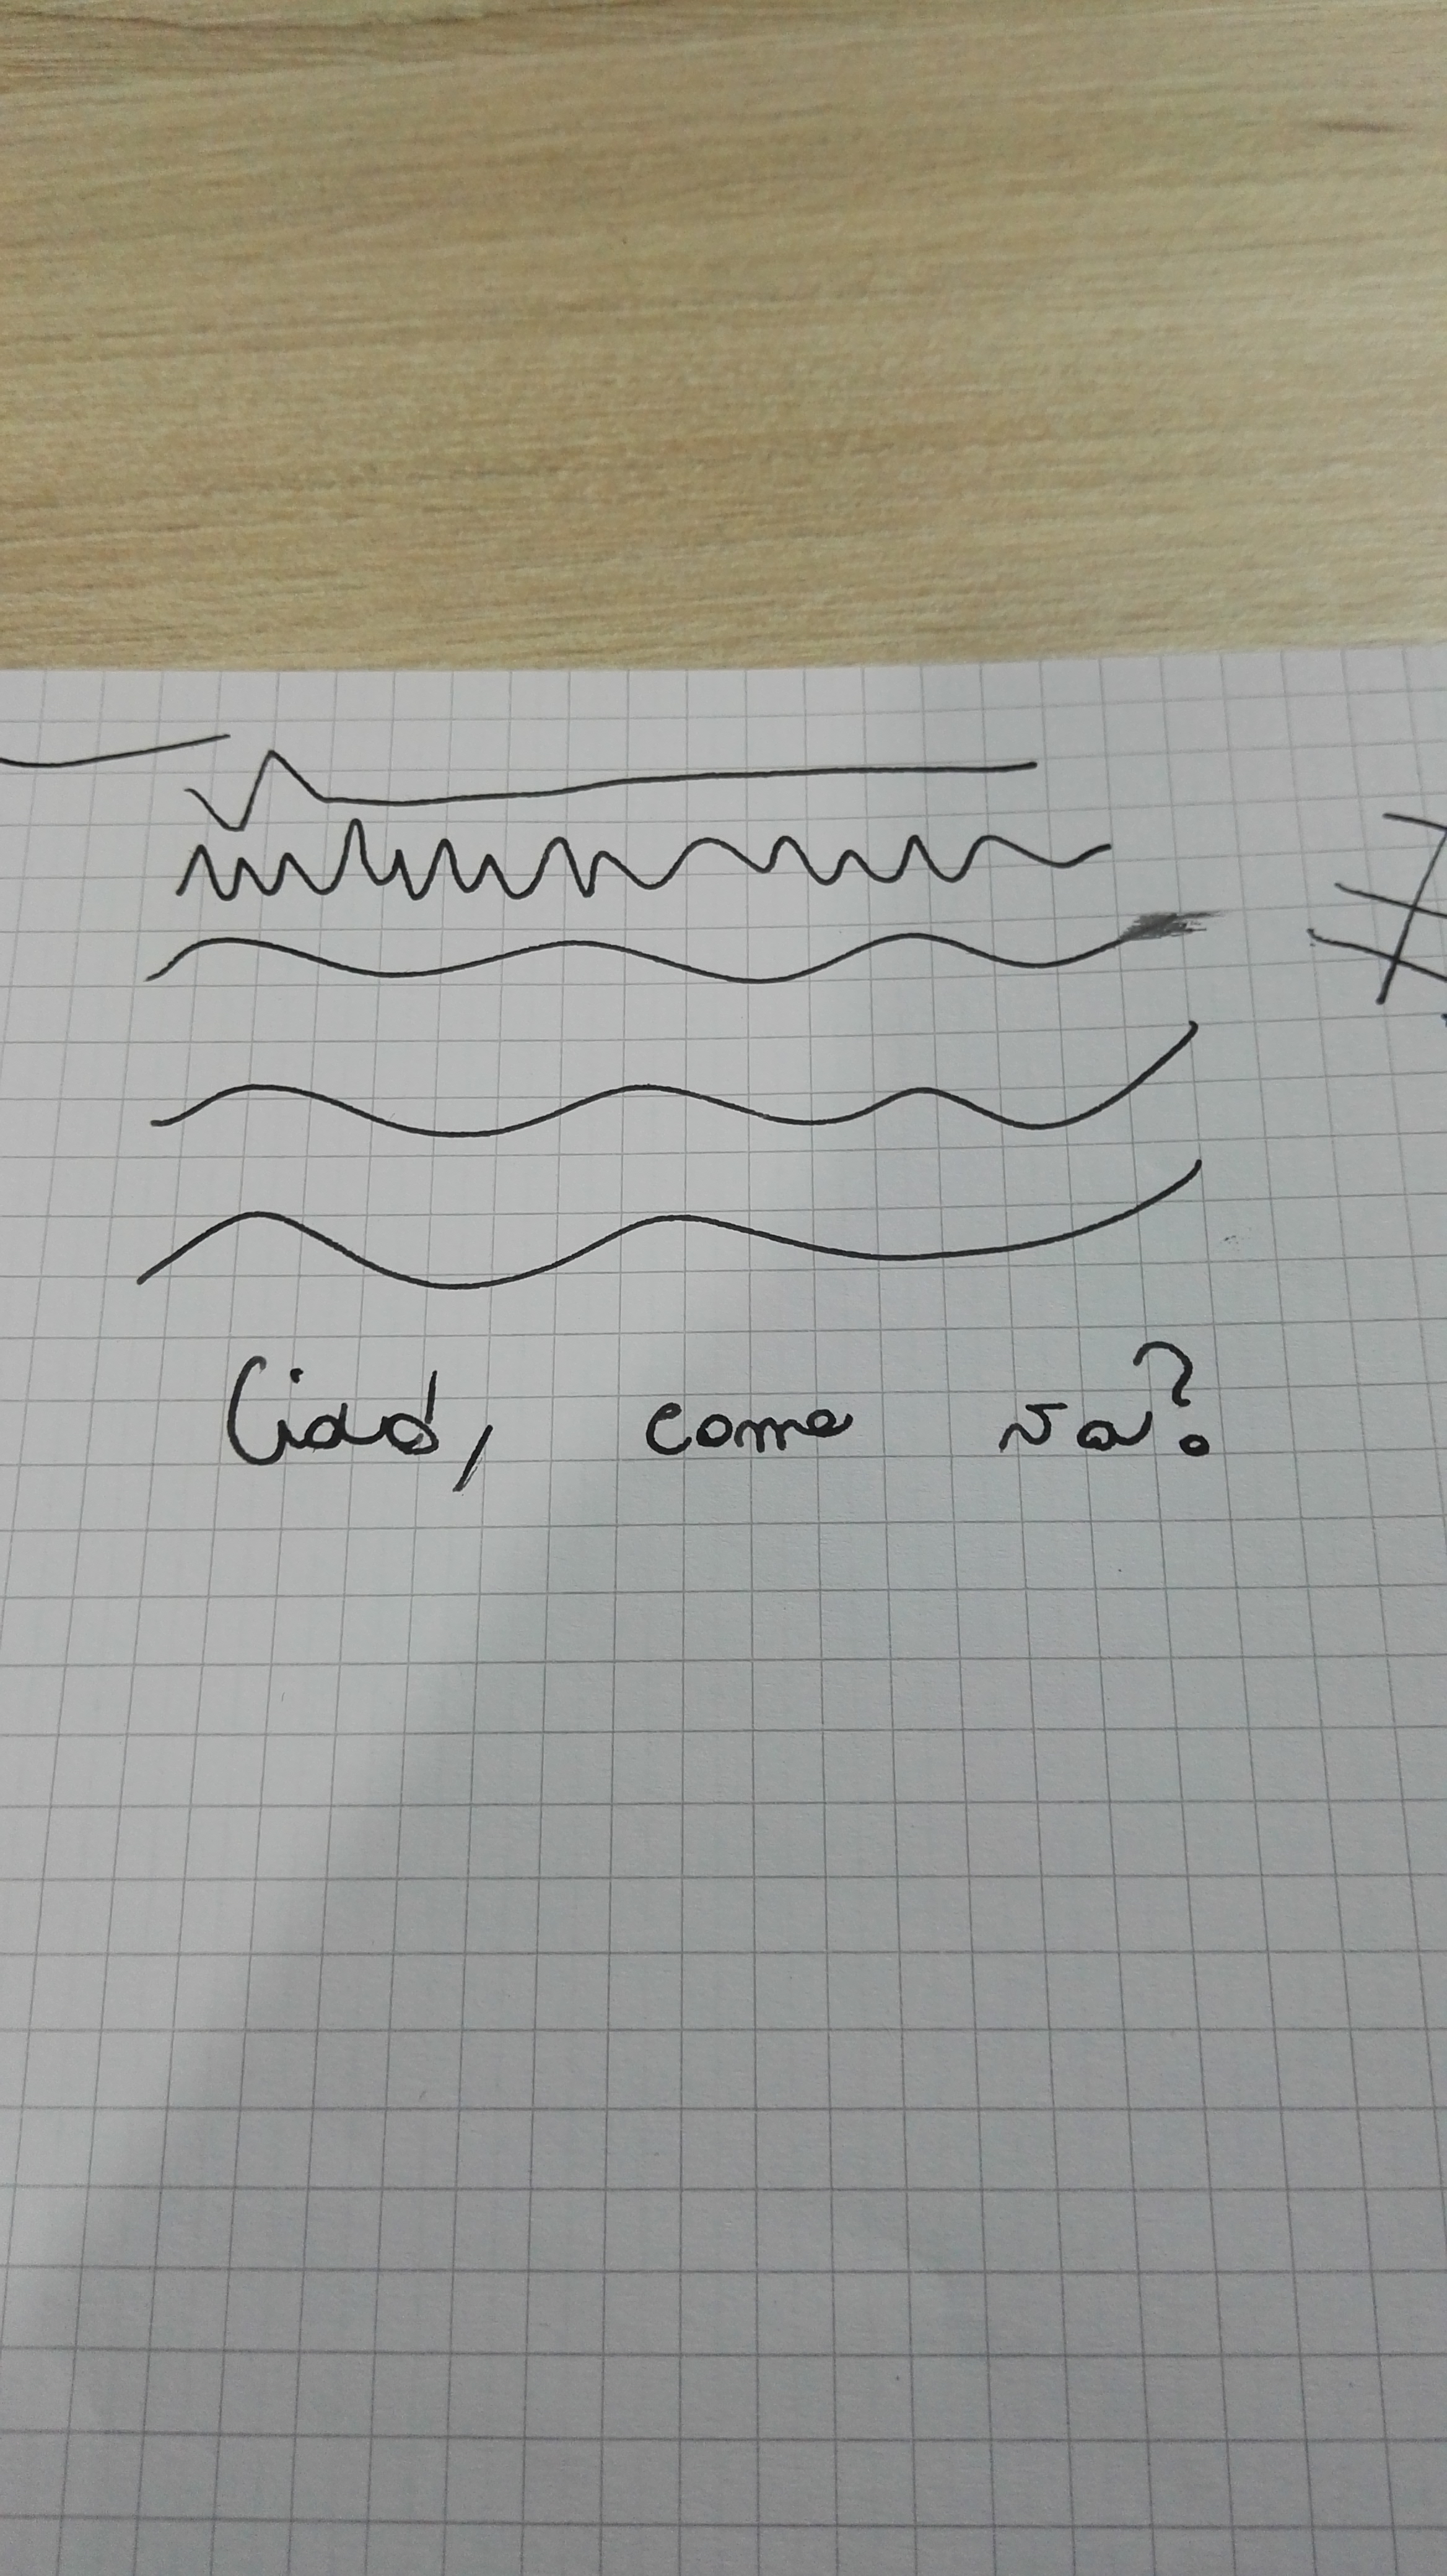 Ciao, come va?